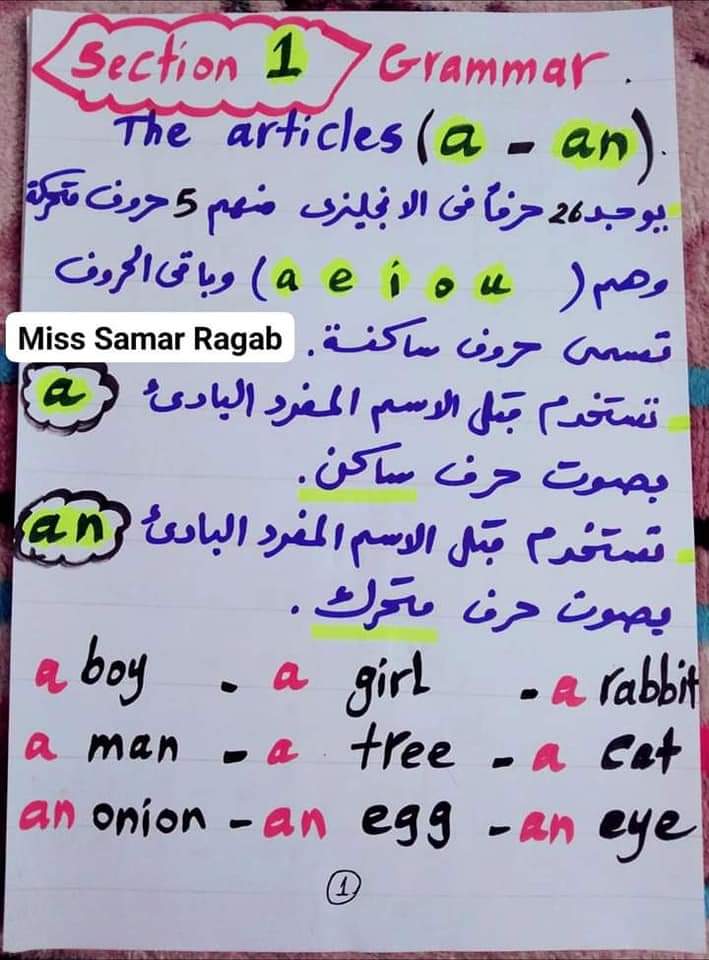 Section 1 Grammar.
The articles (a - an).
يوجد 26 حرفاً فى الانجليزى منهم 5 حروف متحركة
وهم (a e i o u) وباقى الحروف
تسمى حروف ساكنة.
Miss Samar Ragab
a تستخدم قبل الاسم المفرد البادئ
بصوت حرف ساكن.
an تستخدم قبل الاسم المفرد البادئ
بصوت حرف متحرك.
a boy - a girl - a rabbit
a man - a tree - a cat
an onion - an egg - an eye
1